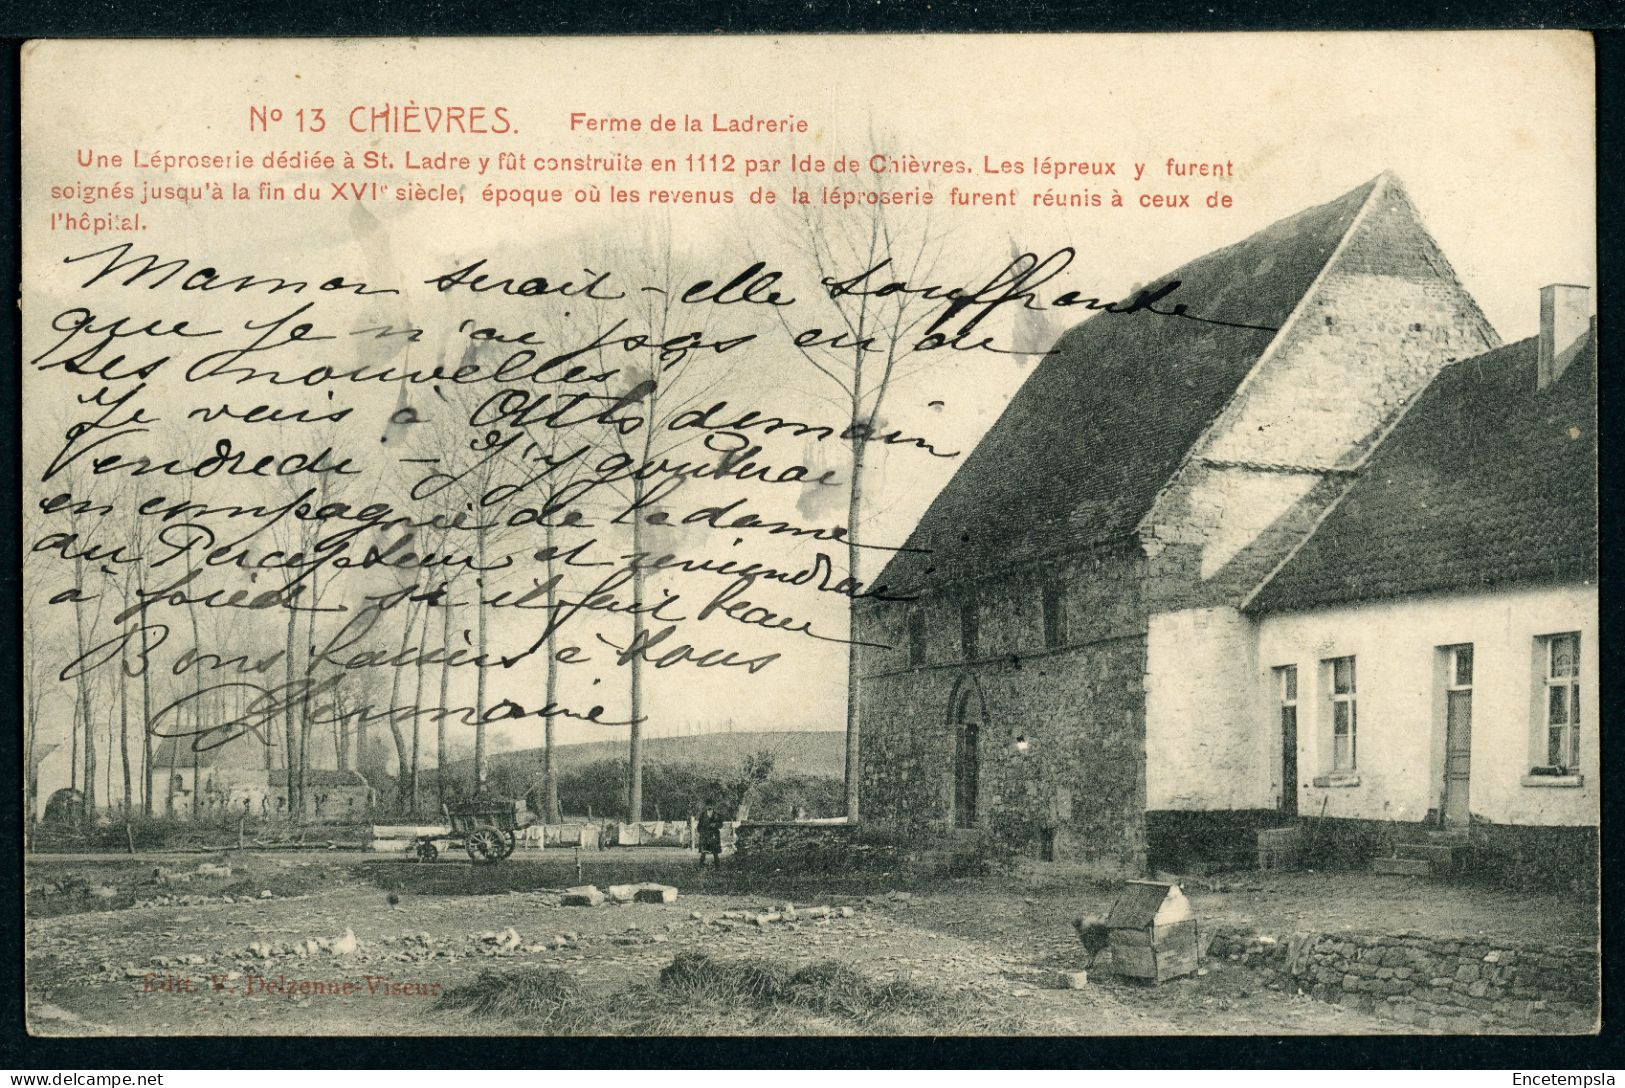 Nº 13 CHIÈVRES. Ferme de la Ladrerie
Une Léproserie dédiée à St. Ladre y fût construite en 1112 par Ide de Chièvres. Les lépreux y furent
soignés jusqu'à la fin du XVIe siècle, époque où les revenus de la léproserie furent réunis à ceux de
l'hôpital.
Maman serait-elle souffrante
que je n'ai pas eu de
ses nouvelles
Je vais à Ath demain
Vendredi - J'y goûterai
en compagnie de la dame
du Percepteur et reviendrai
à pied si il fait beau
Bons baisers à tous
Germaine
Edit. V. Delzenne-Viseur
Encetempsla